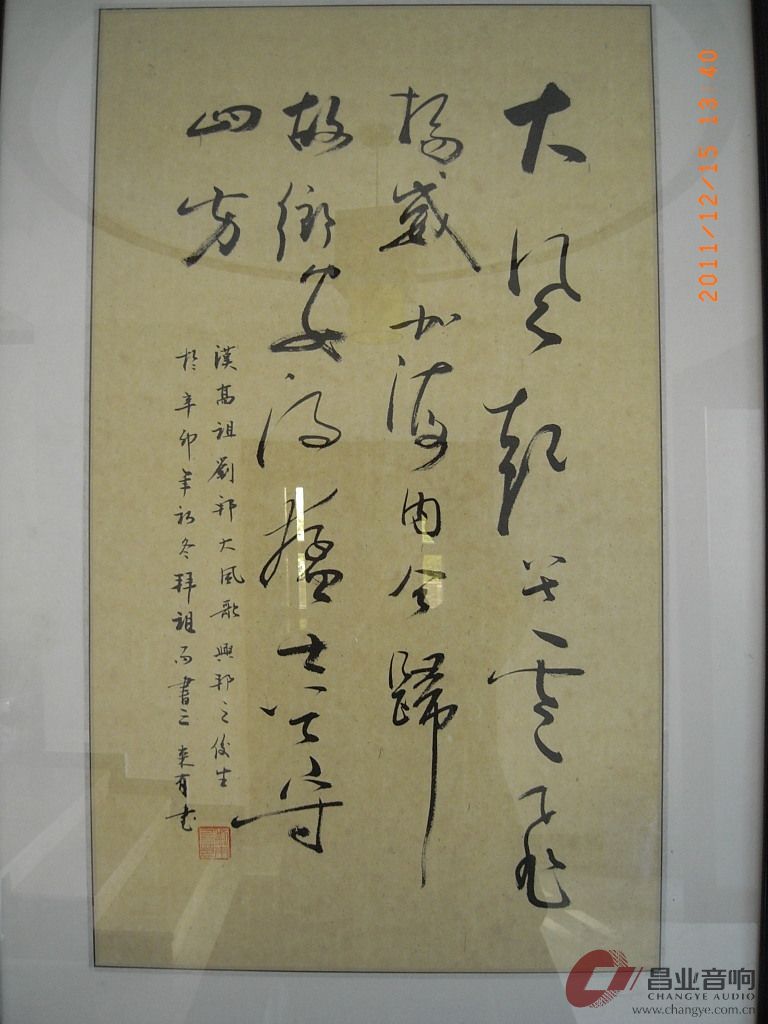 大風起兮雲飛
揚威加海內兮歸
故鄉安得猛士兮守
四方
漢高祖劉邦大風歌 興邦之後生
於辛卯年初冬拜祖而書之 有書
2011/12/15 13:40
昌业音响
CHANGYE AUDIO
www.changye.com.cn